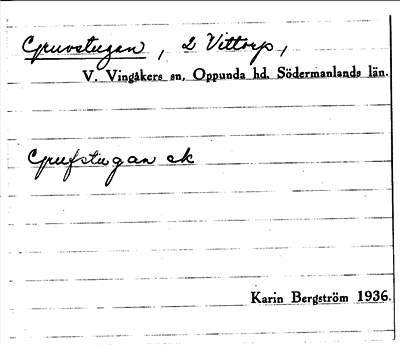 Gruvstugan, L Vittorp,
V. Vingåkers sn, Oppunda hd. Södermanlands län.
Grufstugan ek
Karin Bergström 1936.